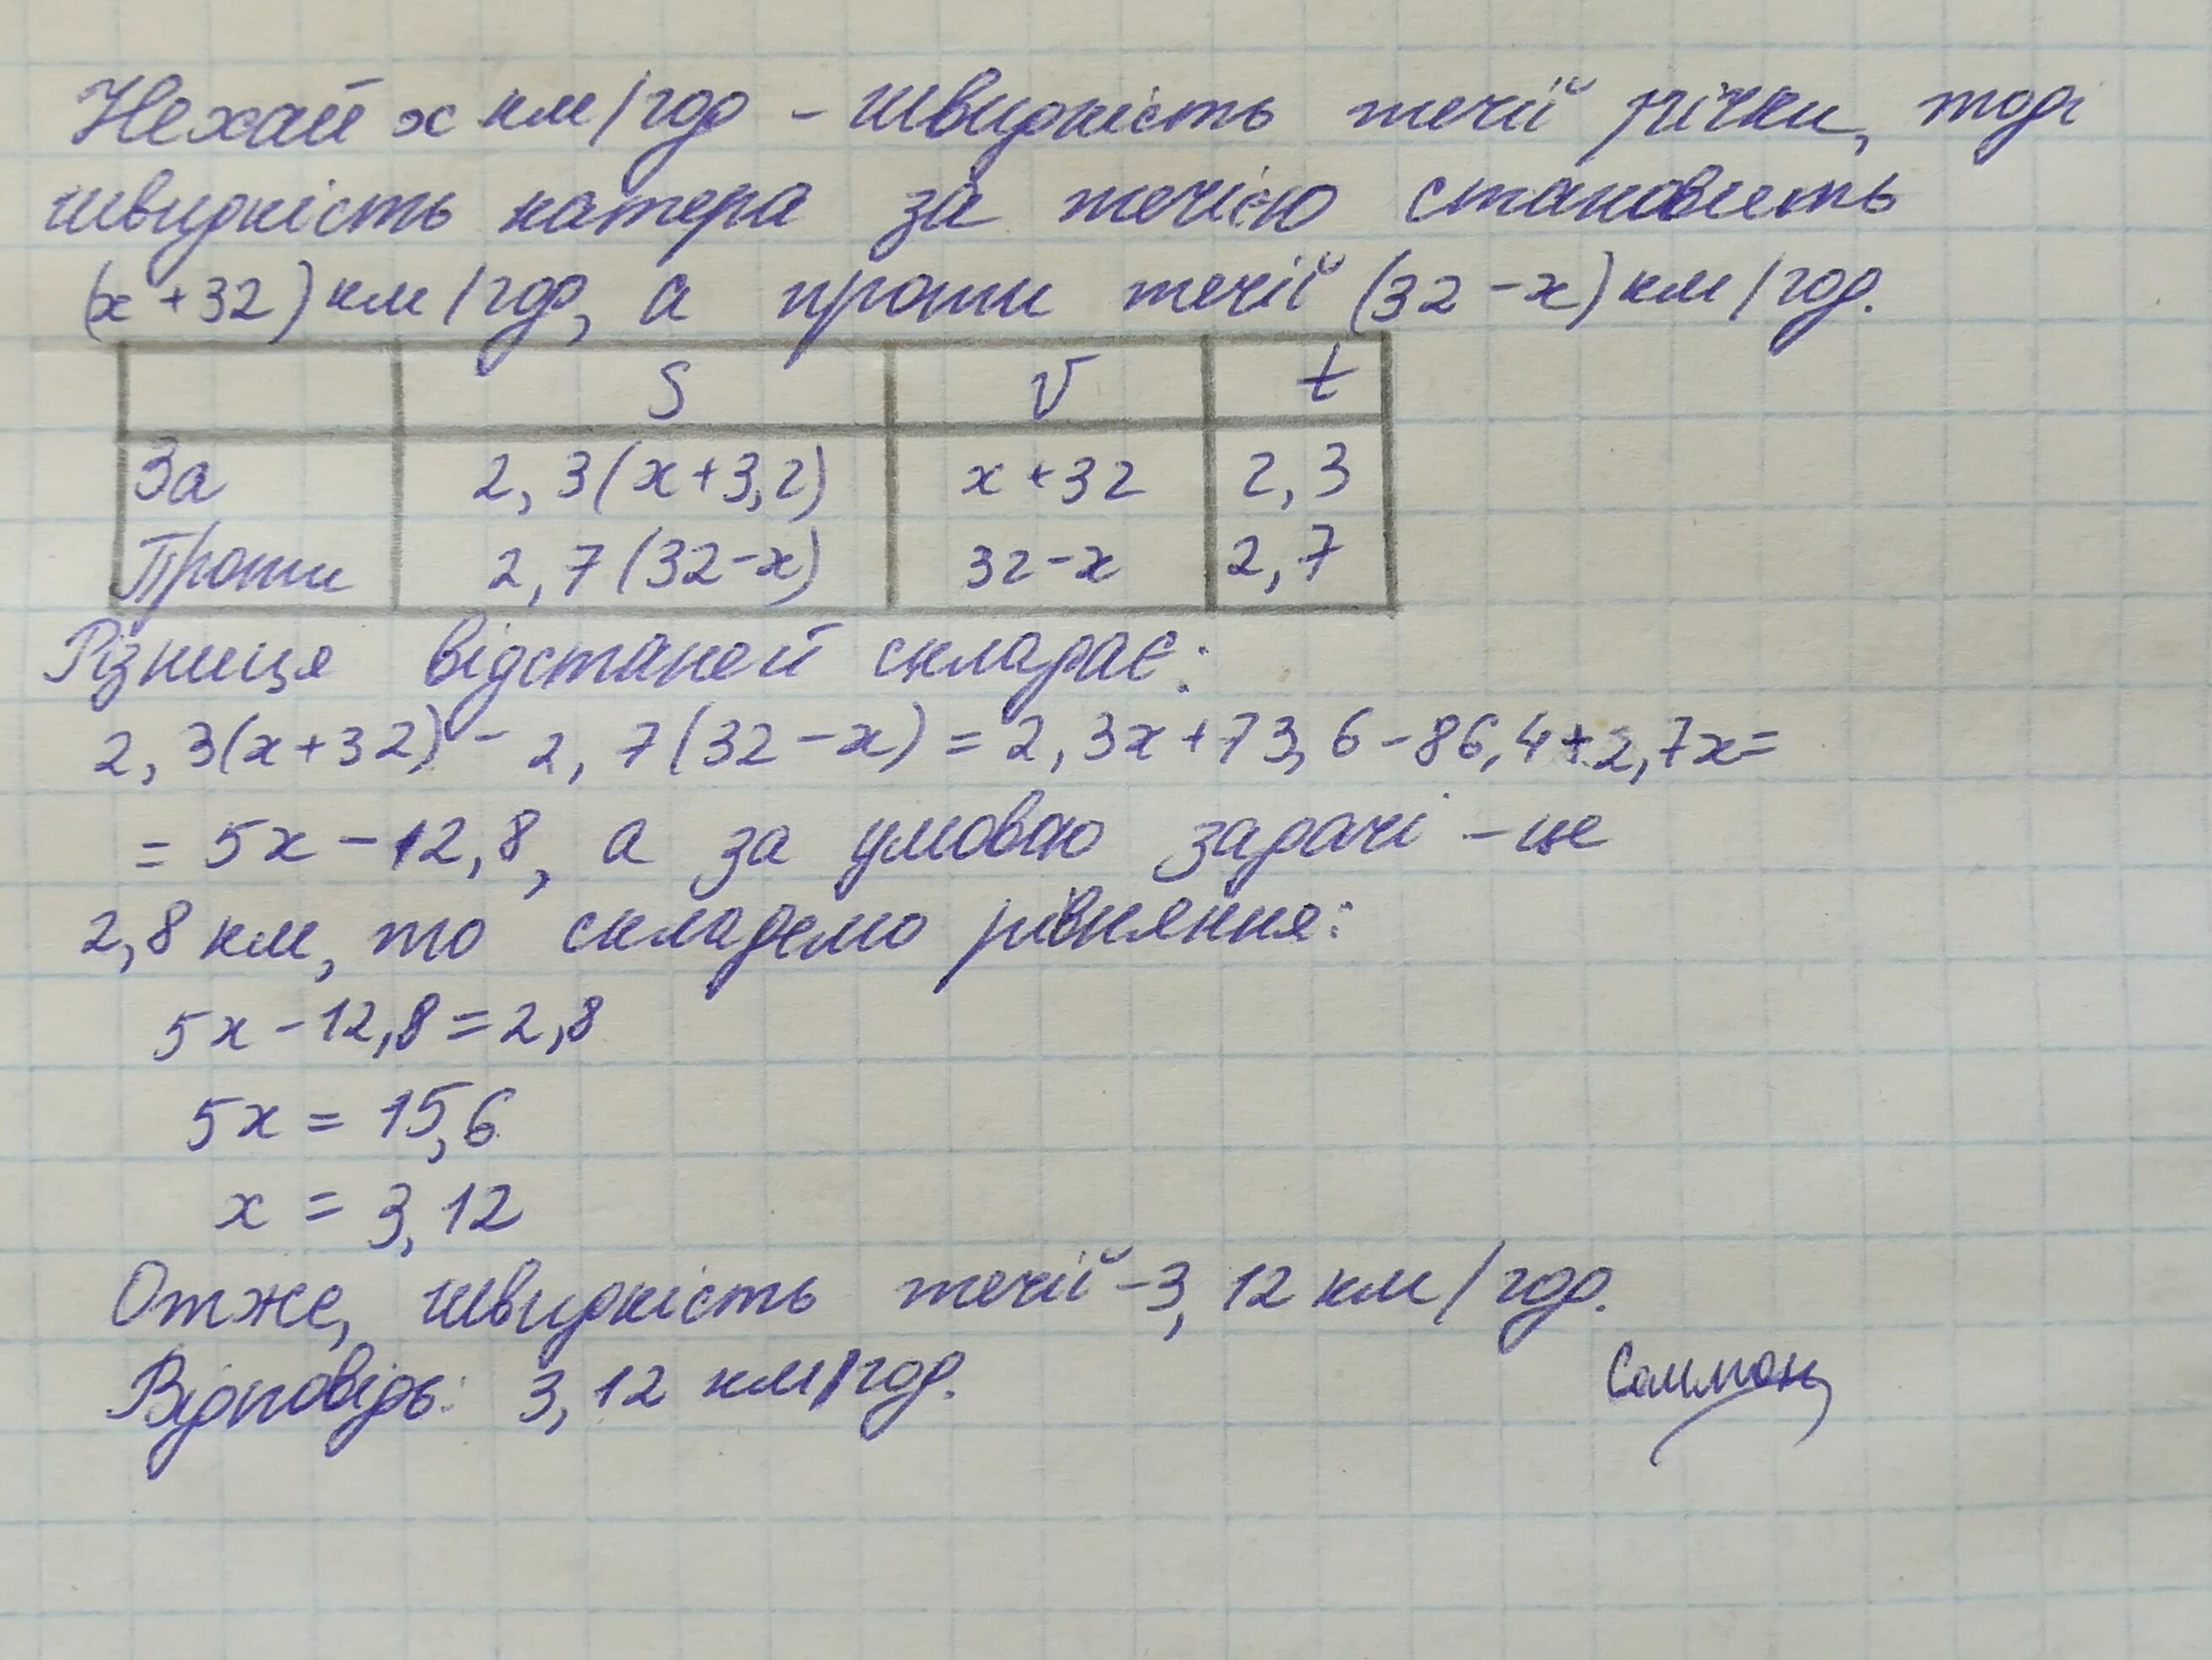 Нехай x км/год - швидкість течії річки, тоді
швидкість катера за течією становить
(x+32) км/год, а проти течії (32-x) км/год.
S V t
За 2,3(x+3,2) x+32 2,3
Проти 2,7(32-x) 32-x 2,7
Різниця відстаней складає:
2,3(x+32) - 2,7(32-x) = 2,3x+73,6-86,4+2,7x=
= 5x-12,8, а за умовою задачі - це
2,8 км, то складемо рівняння:
5x-12,8=2,8
5x = 15,6
x = 3,12
Отже, швидкість течії - 3,12 км/год.
Відповідь: 3,12 км/год.